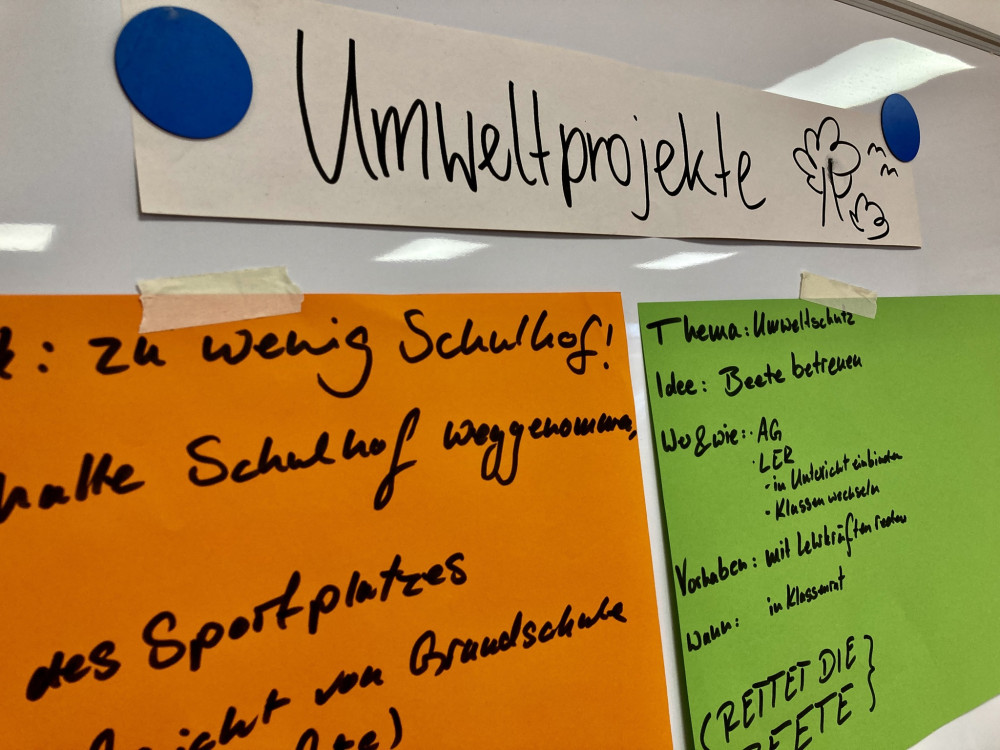 Umweltprojekte
: zu wenig Schulhof!
Schulhof weggenommen,
des Sportplatzes
von Grundschule
Thema: Umweltschutz
Idee: Beete betreuen
Wo & wie: · AG
· LER
- in Unterricht einbinden
· Klassen wechseln
Vorhaben: mit Lehrkräften reden
Wann: in Klassenrat
(RETTET DIE }
BEETE